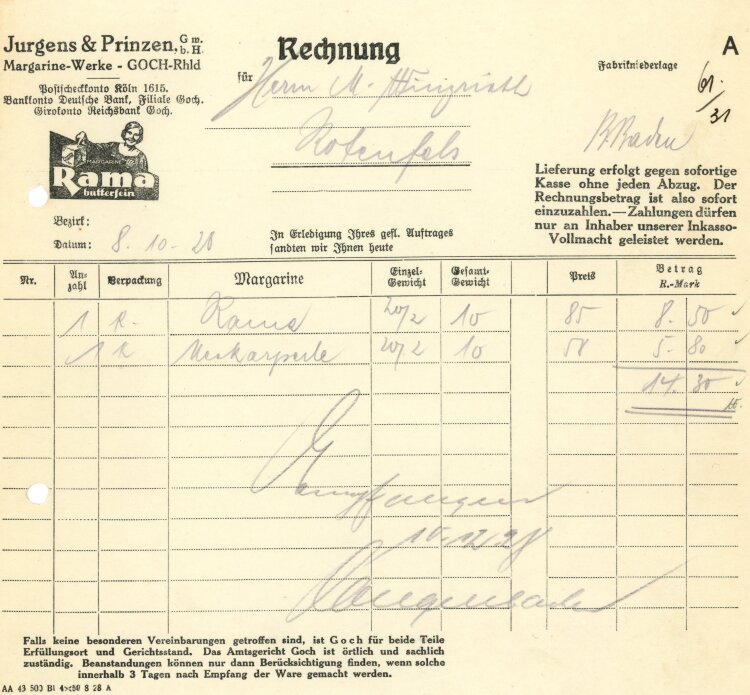 Jurgens & Prinzen, G.m.b.H.
Margarine-Werke - GOCH-Rhld
Postscheckkonto Köln 1615.
Bankkonto Deutsche Bank, Filiale Goch.
Girokonto Reichsbank Goch.
MARGARINE
Rama
butterfein
Rechnung
für Herrn M.
Rotenfels
A
Fabrikniederlage
61/31
B.Baden
Lieferung erfolgt gegen sofortige
Kasse ohne jeden Abzug. Der
Rechnungsbetrag ist also sofort
einzuzahlen.—Zahlungen dürfen
nur an Inhaber unserer Inkasso-
Vollmacht geleistet werden.
Bezirk:
Datum: 8.10.28
In Erledigung Ihres gefl. Auftrages
sandten wir Ihnen heute
Nr. An-zahl Verpackung Margarine Einzel-Gewicht Gesamt-Gewicht Preis Betrag R.-Mark
1 K. Rama 20/2 10 85 8.50
1 K Neckarperle 20/2 10 58 5.80
14.30
Empfangen
10.12.28
Falls keine besonderen Vereinbarungen getroffen sind, ist Goch für beide Teile
Erfüllungsort und Gerichtsstand. Das Amtsgericht Goch ist örtlich und sachlich
zuständig. Beanstandungen können nur dann Berücksichtigung finden, wenn solche
innerhalb 3 Tagen nach Empfang der Ware gemacht werden.
AA 43 500 Bl 4×c50 8 28 A